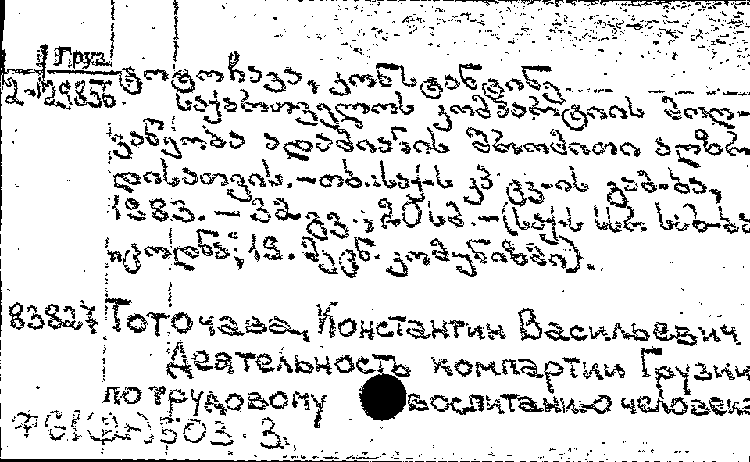 Груз.
2-2985б
ტოტოჩავა, კონსტანტინე
საქართველოს კომპარტიის მოღ-
ვაწეობა ადამიანის შრომითი აღზრ
დისათვის.-თბ.:საქ-ს კპ ცკ-ის გამ-ბა,
1983.- გვ.; 20 სმ.-(საქ-ს სსრ საზ-ბა
"ცოდნა"; 19. მეცნ. კომუნიზმი).
83827 Тоточава, Константин Васильевич
Деятельность компартии Грузии
по трудовому воспитанию человека
503 3.